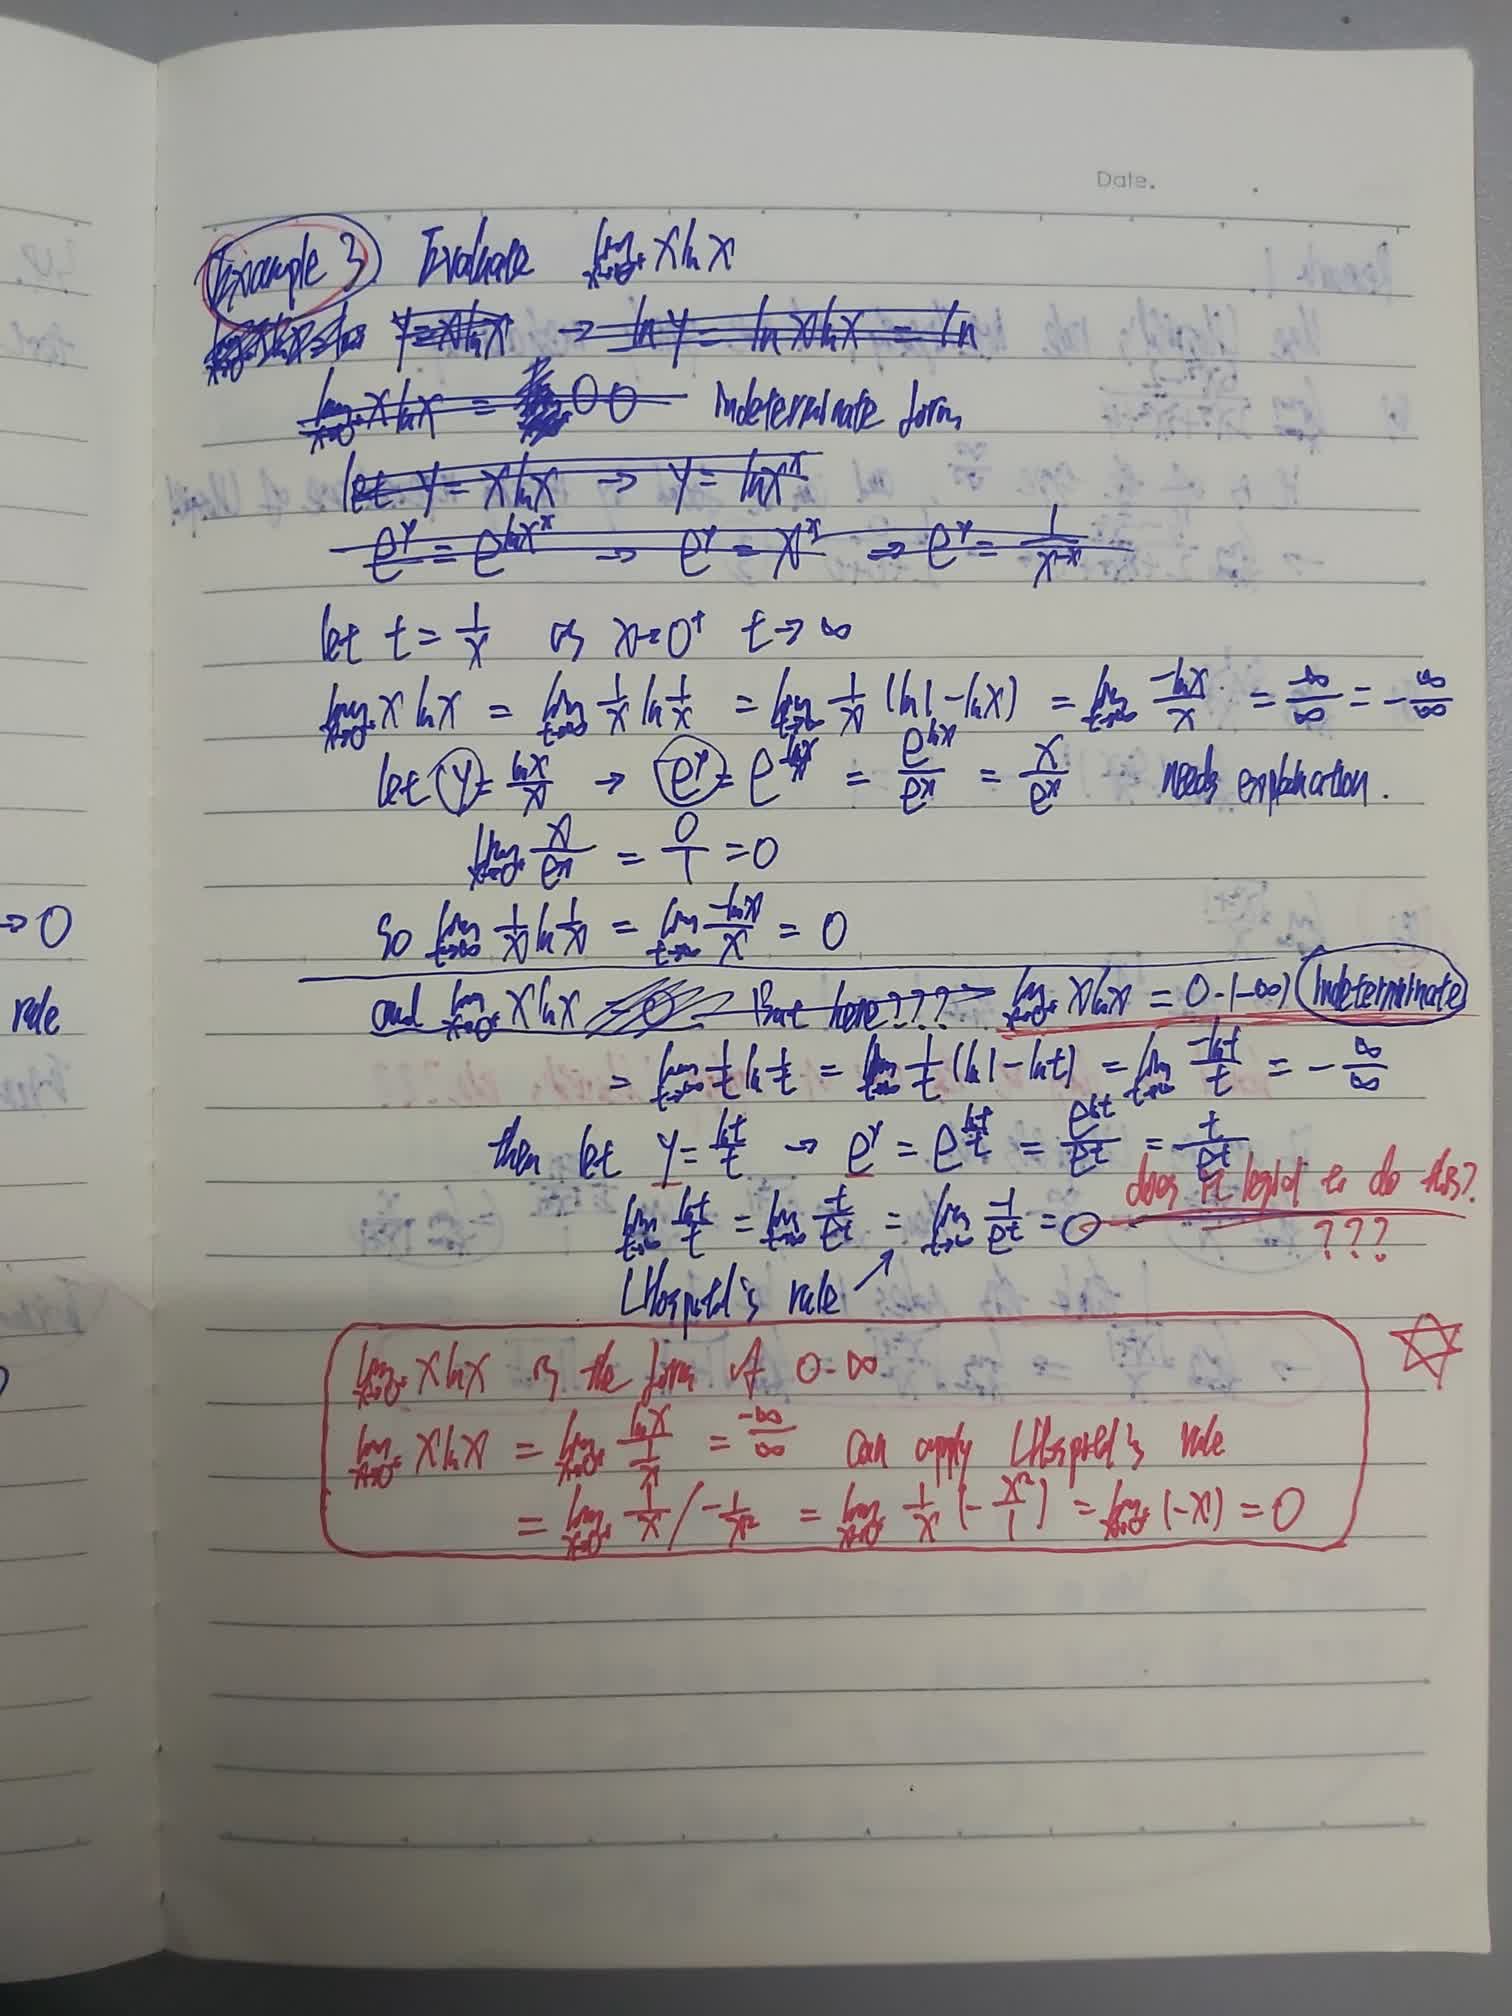 Date.
Example 3 Evaluate lim x→0⁺ x ln x
y = x ln x → ln y = ln x ln x = ln
lim x→0⁺ x ln x = 0 0 indeterminate form
let y = x ln x → y = ln x^x
e^y = e^(ln x^x) → e^y = x^x → e^y = 1/x^(-x)
let t = 1/x as x→0⁺ t→∞
lim x→0⁺ x ln x = lim t→∞ 1/x ln 1/x = lim t→∞ 1/x (ln 1 - ln x) = lim t→∞ -ln x/x = -∞/∞ = -∞/∞
let y = ln x/x → e^y = e^(ln x/x) = e^(ln x)/e^x = x/e^x needs explanation.
lim x→0⁺ x/e^x = 0/1 = 0
So lim t→∞ 1/x ln 1/x = lim t→∞ -ln x/x = 0
→0
and lim x→0⁺ x ln x = 0 But here??? lim x→0⁺ x ln x = 0·(-∞) indeterminate
rule
= lim t→∞ 1/t ln 1/t = lim t→∞ 1/t (ln 1 - ln t) = lim t→∞ -ln t/t = -∞/∞
then let y = ln t/t → e^y = e^(ln t/t) = e^(ln t)/e^t = t/e^t
does it legist to do this?
lim t→∞ ln t/t = lim t→∞ t/e^t = lim t→∞ 1/e^t = 0 ???
LHospital's rule
lim x→0⁺ x ln x is the form of 0·∞
lim x→0⁺ x ln x = lim x→0⁺ ln x/(1/x) = -∞/∞ can apply LHospital's rule
= lim x→0⁺ 1/x / -1/x² = lim x→0⁺ 1/x (-x²/1) = lim x→0⁺ (-x) = 0